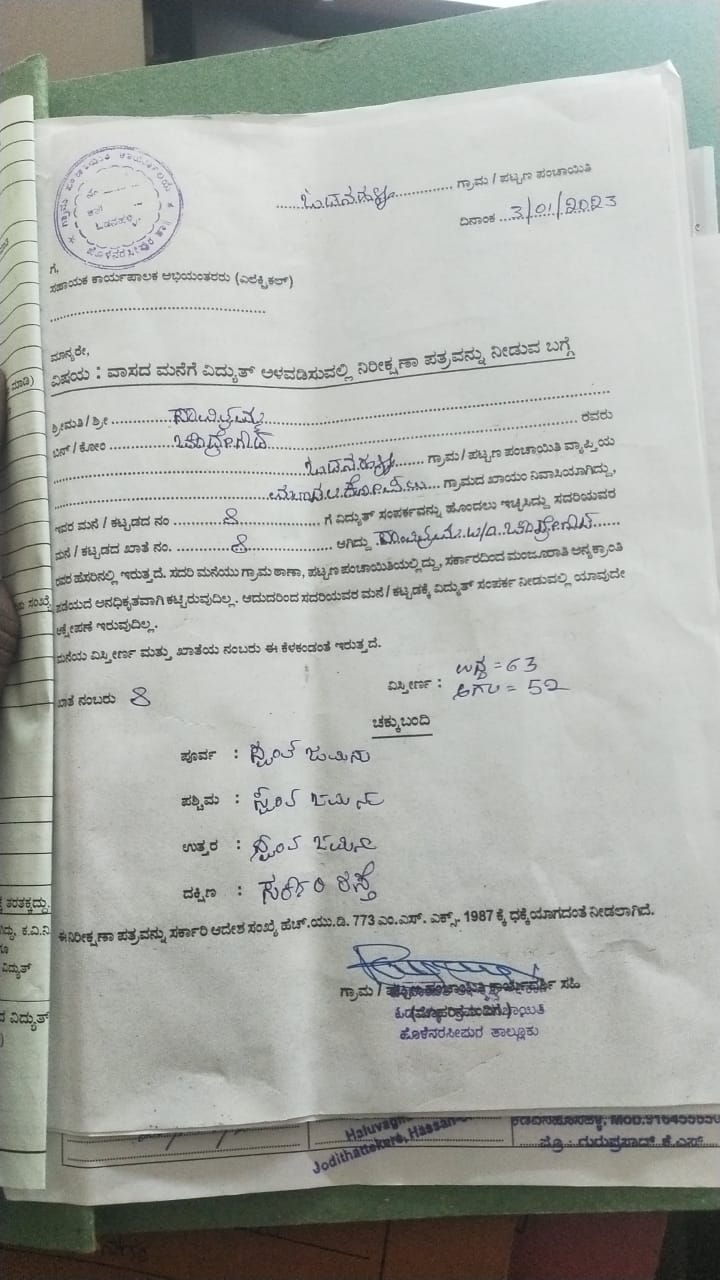 ಗ್ರಾಮ ಪಂಚಾಯಿತಿ ಕಾರ್ಯಾಲಯ
ಒಡನಹಳ್ಳಿ
ಹೊಳೆನರಸೀಪುರ ತಾ||
ಒಡನಹಳ್ಳಿ ಗ್ರಾಮ / ಪಟ್ಟಣ ಪಂಚಾಯಿತಿ
ದಿನಾಂಕ 3/01/2023
ಗೆ,
ಸಹಾಯಕ ಕಾರ್ಯಪಾಲಕ ಅಭಿಯಂತರರು (ಎಲೆಕ್ಟ್ರಿಕಲ್)
ಮಾನ್ಯರೇ,
ವಿಷಯ : ವಾಸದ ಮನೆಗೆ ವಿದ್ಯುತ್ ಅಳವಡಿಸುವಲ್ಲಿ ನಿರೀಕ್ಷಣಾ ಪತ್ರವನ್ನು ನೀಡುವ ಬಗ್ಗೆ
ಶ್ರೀಮತಿ / ಶ್ರೀ
ಬಿನ್ / ಕೋಂ ಚಂದ್ರೇಗೌಡ ರವರು
ಒಡನಹಳ್ಳಿ ಗ್ರಾಮ / ಪಟ್ಟಣ ಪಂಚಾಯಿತಿ ವ್ಯಾಪ್ತಿಯ
ಗ್ರಾಮದ ಖಾಯಂ ನಿವಾಸಿಯಾಗಿದ್ದು,
ಇವರ ಮನೆ / ಕಟ್ಟಡದ ನಂ 8 ಗೆ ವಿದ್ಯುತ್ ಸಂಪರ್ಕವನ್ನು ಹೊಂದಲು ಇಚ್ಛಿಸಿದ್ದು ಸದರಿಯವರ
ಮನೆ / ಕಟ್ಟಡದ ಖಾತೆ ನಂ. 8 ಆಗಿದ್ದು ಚಂದ್ರೇಗೌಡ
ರವರ ಹೆಸರಿನಲ್ಲಿ ಇರುತ್ತದೆ. ಸದರಿ ಮನೆಯು ಗ್ರಾಮ ಠಾಣಾ, ಪಟ್ಟಣ ಪಂಚಾಯಿತಿಯಲ್ಲಿದ್ದು, ಸರ್ಕಾರದಿಂದ ಮಂಜೂರಾತಿ ಅನ್ಯಕ್ರಾಂತಿ
ಪಡೆಯದೆ ಅನಧಿಕೃತವಾಗಿ ಕಟ್ಟಿರುವುದಿಲ್ಲ. ಆದುದರಿಂದ ಸದರಿಯವರ ಮನೆ / ಕಟ್ಟಡಕ್ಕೆ ವಿದ್ಯುತ್ ಸಂಪರ್ಕ ನೀಡುವಲ್ಲಿ ಯಾವುದೇ
ಆಕ್ಷೇಪಣೆ ಇರುವುದಿಲ್ಲ.
ಮನೆಯ ವಿಸ್ತೀರ್ಣ ಮತ್ತು ಖಾತೆಯ ನಂಬರು ಈ ಕೆಳಕಂಡಂತೆ ಇರುತ್ತದೆ.
ಖಾತೆ ನಂಬರು 8 ವಿಸ್ತೀರ್ಣ : ಉದ್ದ = 63
ಅಗಲ = 52
ಚಕ್ಕುಬಂದಿ
ಪೂರ್ವ : ಸ್ವಂತ ಜಮೀನು
ಪಶ್ಚಿಮ : ಸ್ವಂತ ಜಮೀನು
ಉತ್ತರ : ಸ್ವಂತ ಜಮೀನು
ದಕ್ಷಿಣ : ಸರ್ಕಾರಿ ರಸ್ತೆ
ಈ ನಿರೀಕ್ಷಣಾ ಪತ್ರವನ್ನು ಸರ್ಕಾರಿ ಆದೇಶ ಸಂಖ್ಯೆ ಹೆಚ್.ಯು.ಡಿ. 773 ಎಂ.ಎಸ್. ಎಕ್ಸ್- 1987 ಕ್ಕೆ ಧಕ್ಕೆಯಾಗದಂತೆ ನೀಡಲಾಗಿದೆ.
ಗ್ರಾಮ / ಪಟ್ಟಣ ಪಂಚಾಯಿತಿ ಕಾರ್ಯದರ್ಶಿ ಸಹಿ
(ಮೊಹರಿನೊಂದಿಗೆ)
ಹೊಳೆನರಸೀಪುರ ತಾಲ್ಲೂಕು
Jodithattekere, Hassan
ಪ್ರೊ : ಗುರುಪ್ರಸಾದ್ ಕೆ.ಎಸ್.
ಮಾಡಿ)
ಸಂಖ್ಯೆ
ತರತಕ್ಕದ್ದು.
ಕ.ವಿ.ನಿ
ವಿದ್ಯುತ್
ದ ವಿದ್ಯುತ್